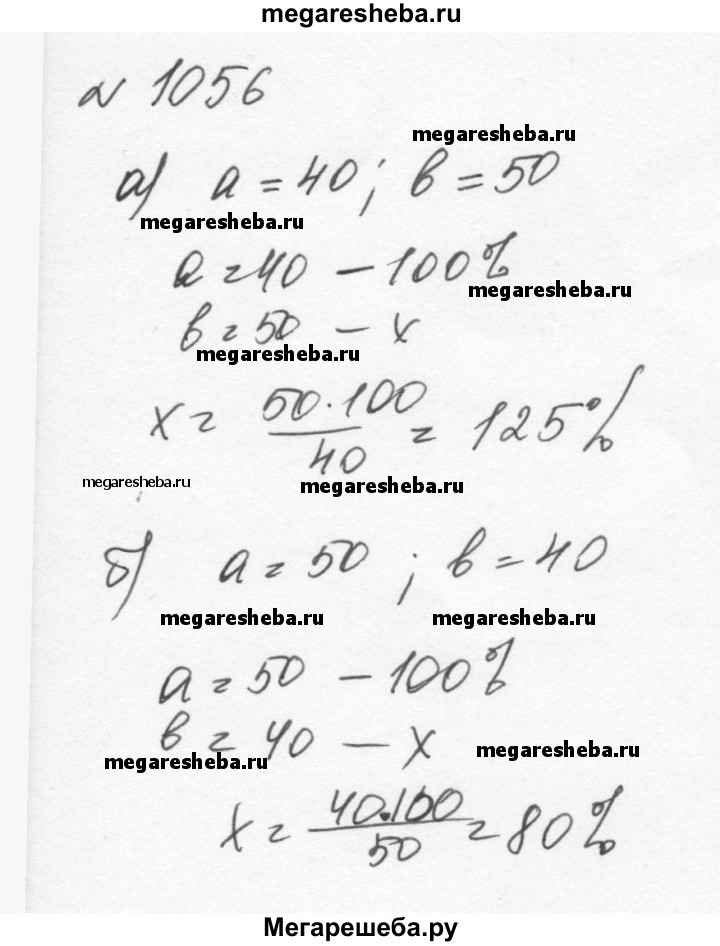 megaresheba.ru
№ 1056
megaresheba.ru
а) a = 40 ; b = 50
megaresheba.ru
a = 40 — 100%
megaresheba.ru
b = 50 — x
megaresheba.ru
x = 50·100 / 40 = 125%
megaresheba.ru
megaresheba.ru
б) a = 50 ; b = 40
megaresheba.ru
megaresheba.ru
a = 50 — 100%
b = 40 — x
megaresheba.ru
megaresheba.ru
x = 40·100 / 50 = 80%
Мегарешеба.ру